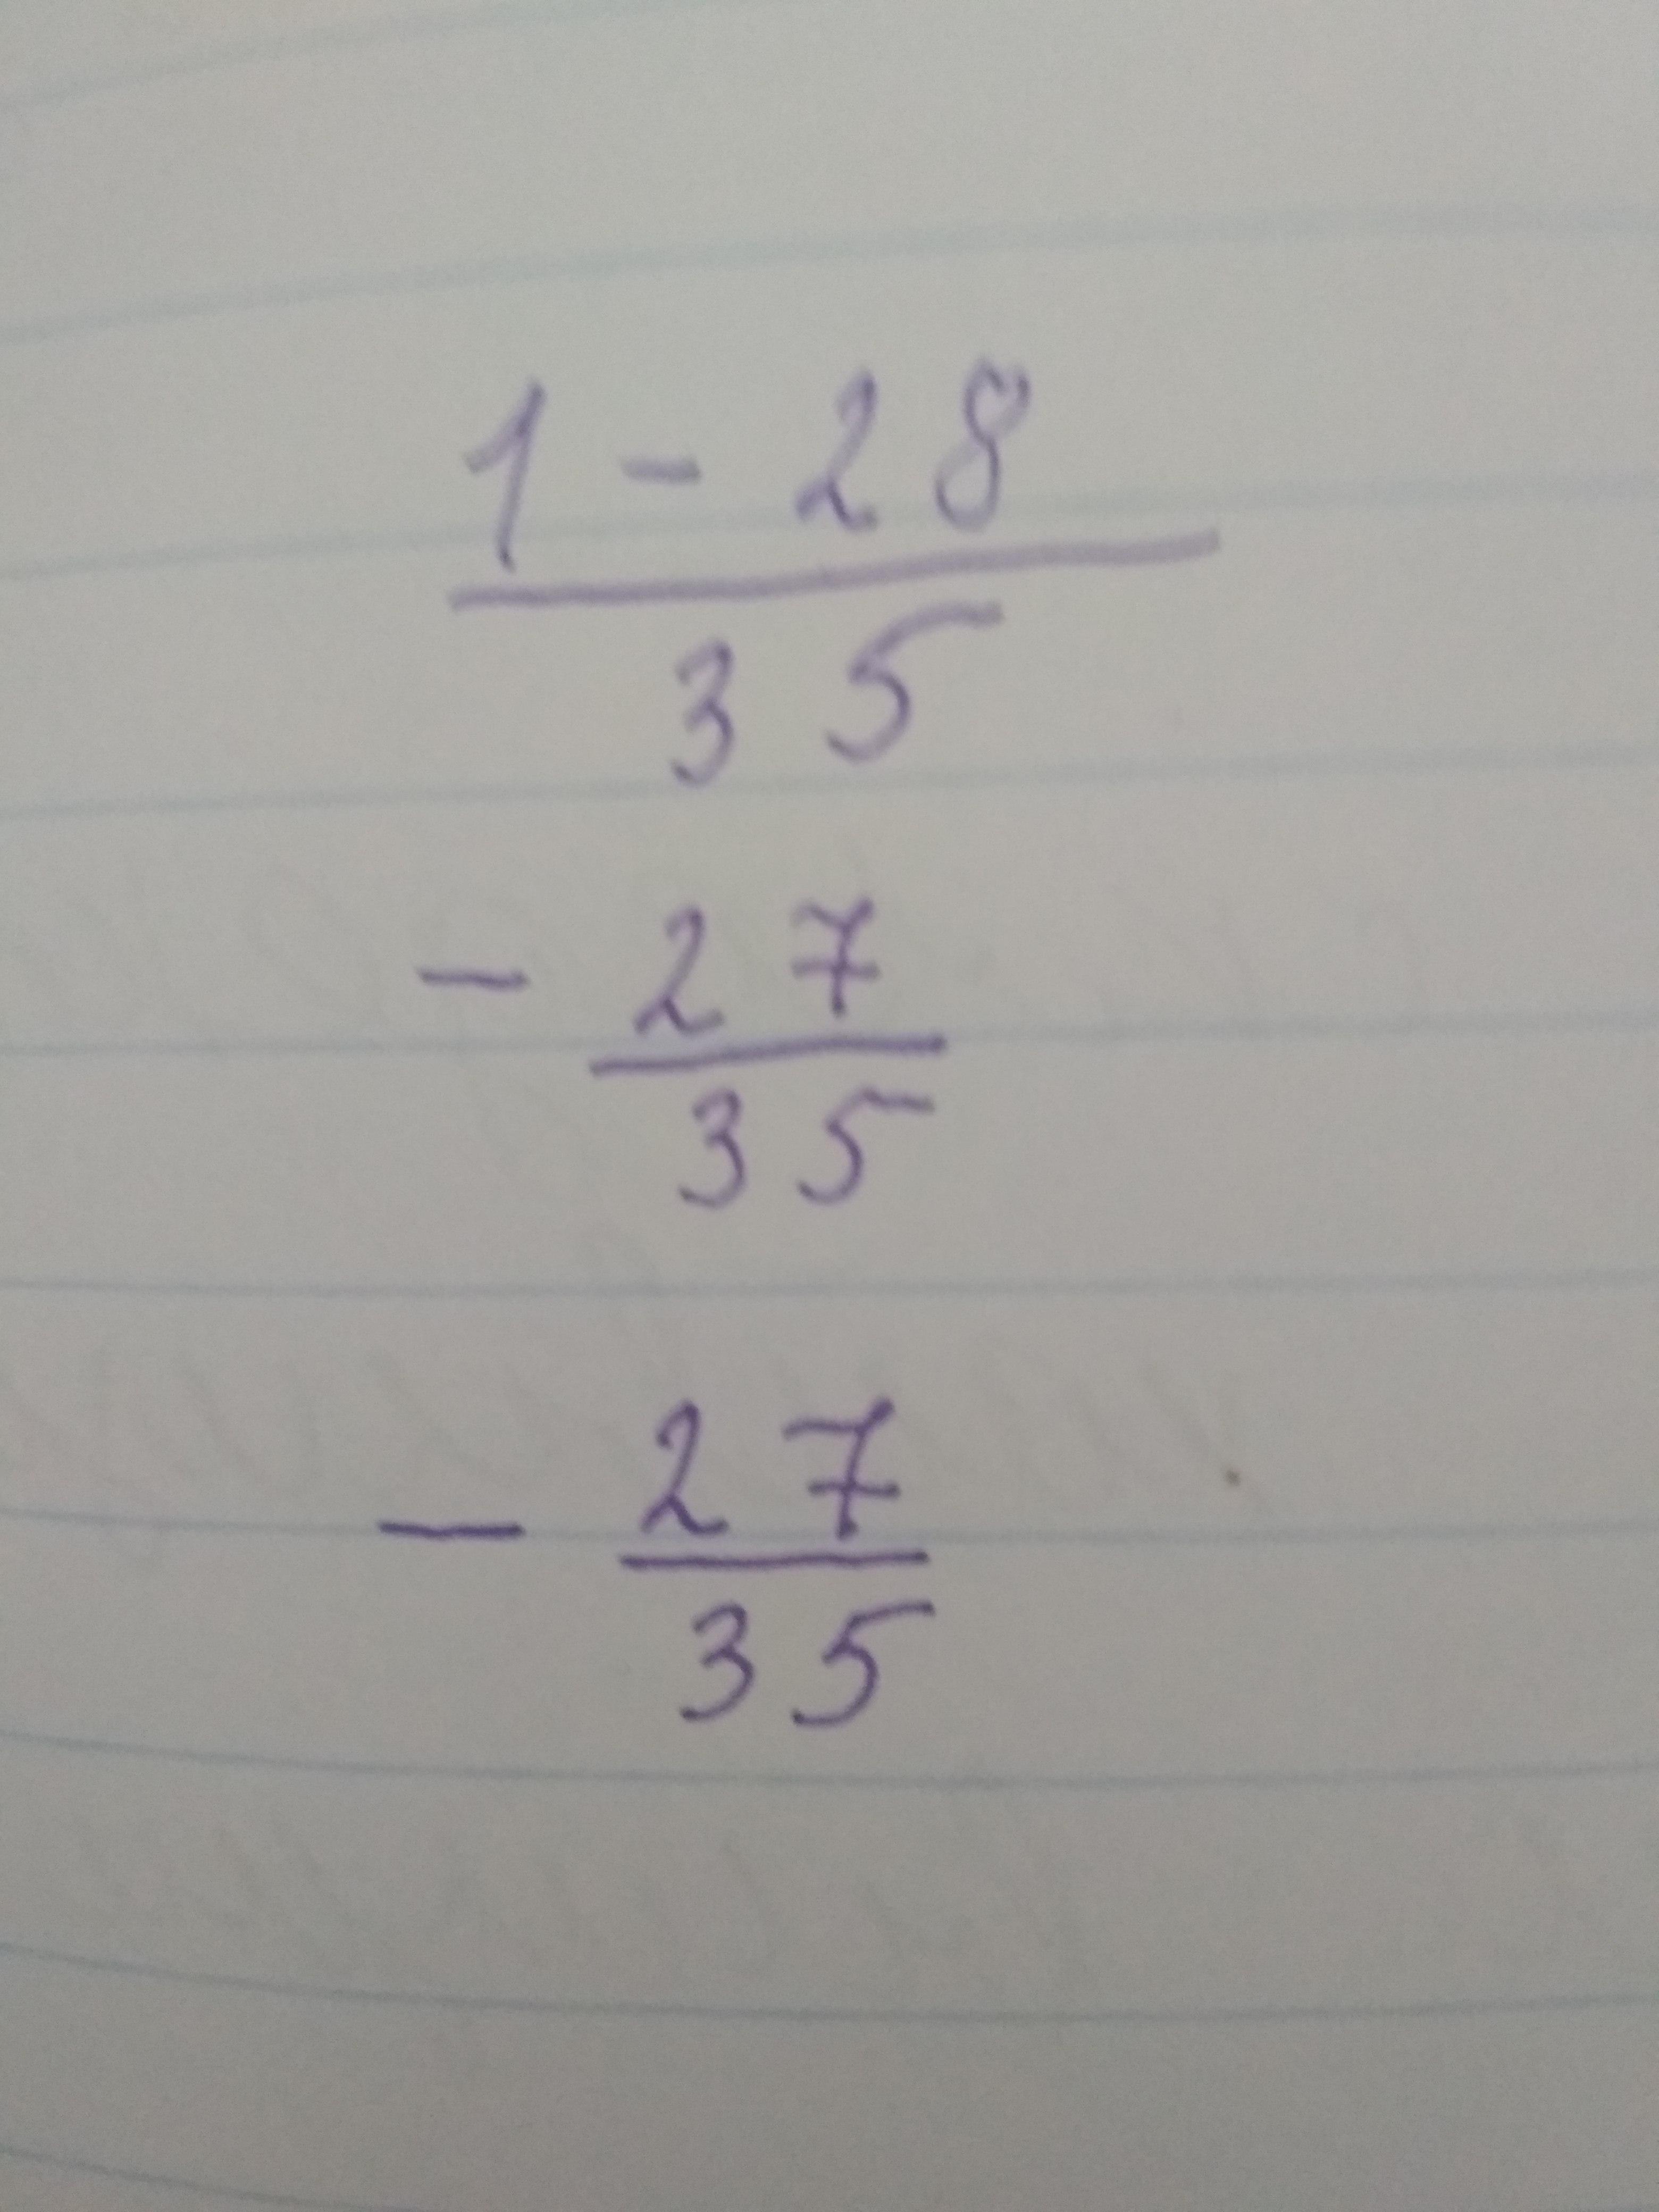 1 - 28
35
- 27
35
- 27
35